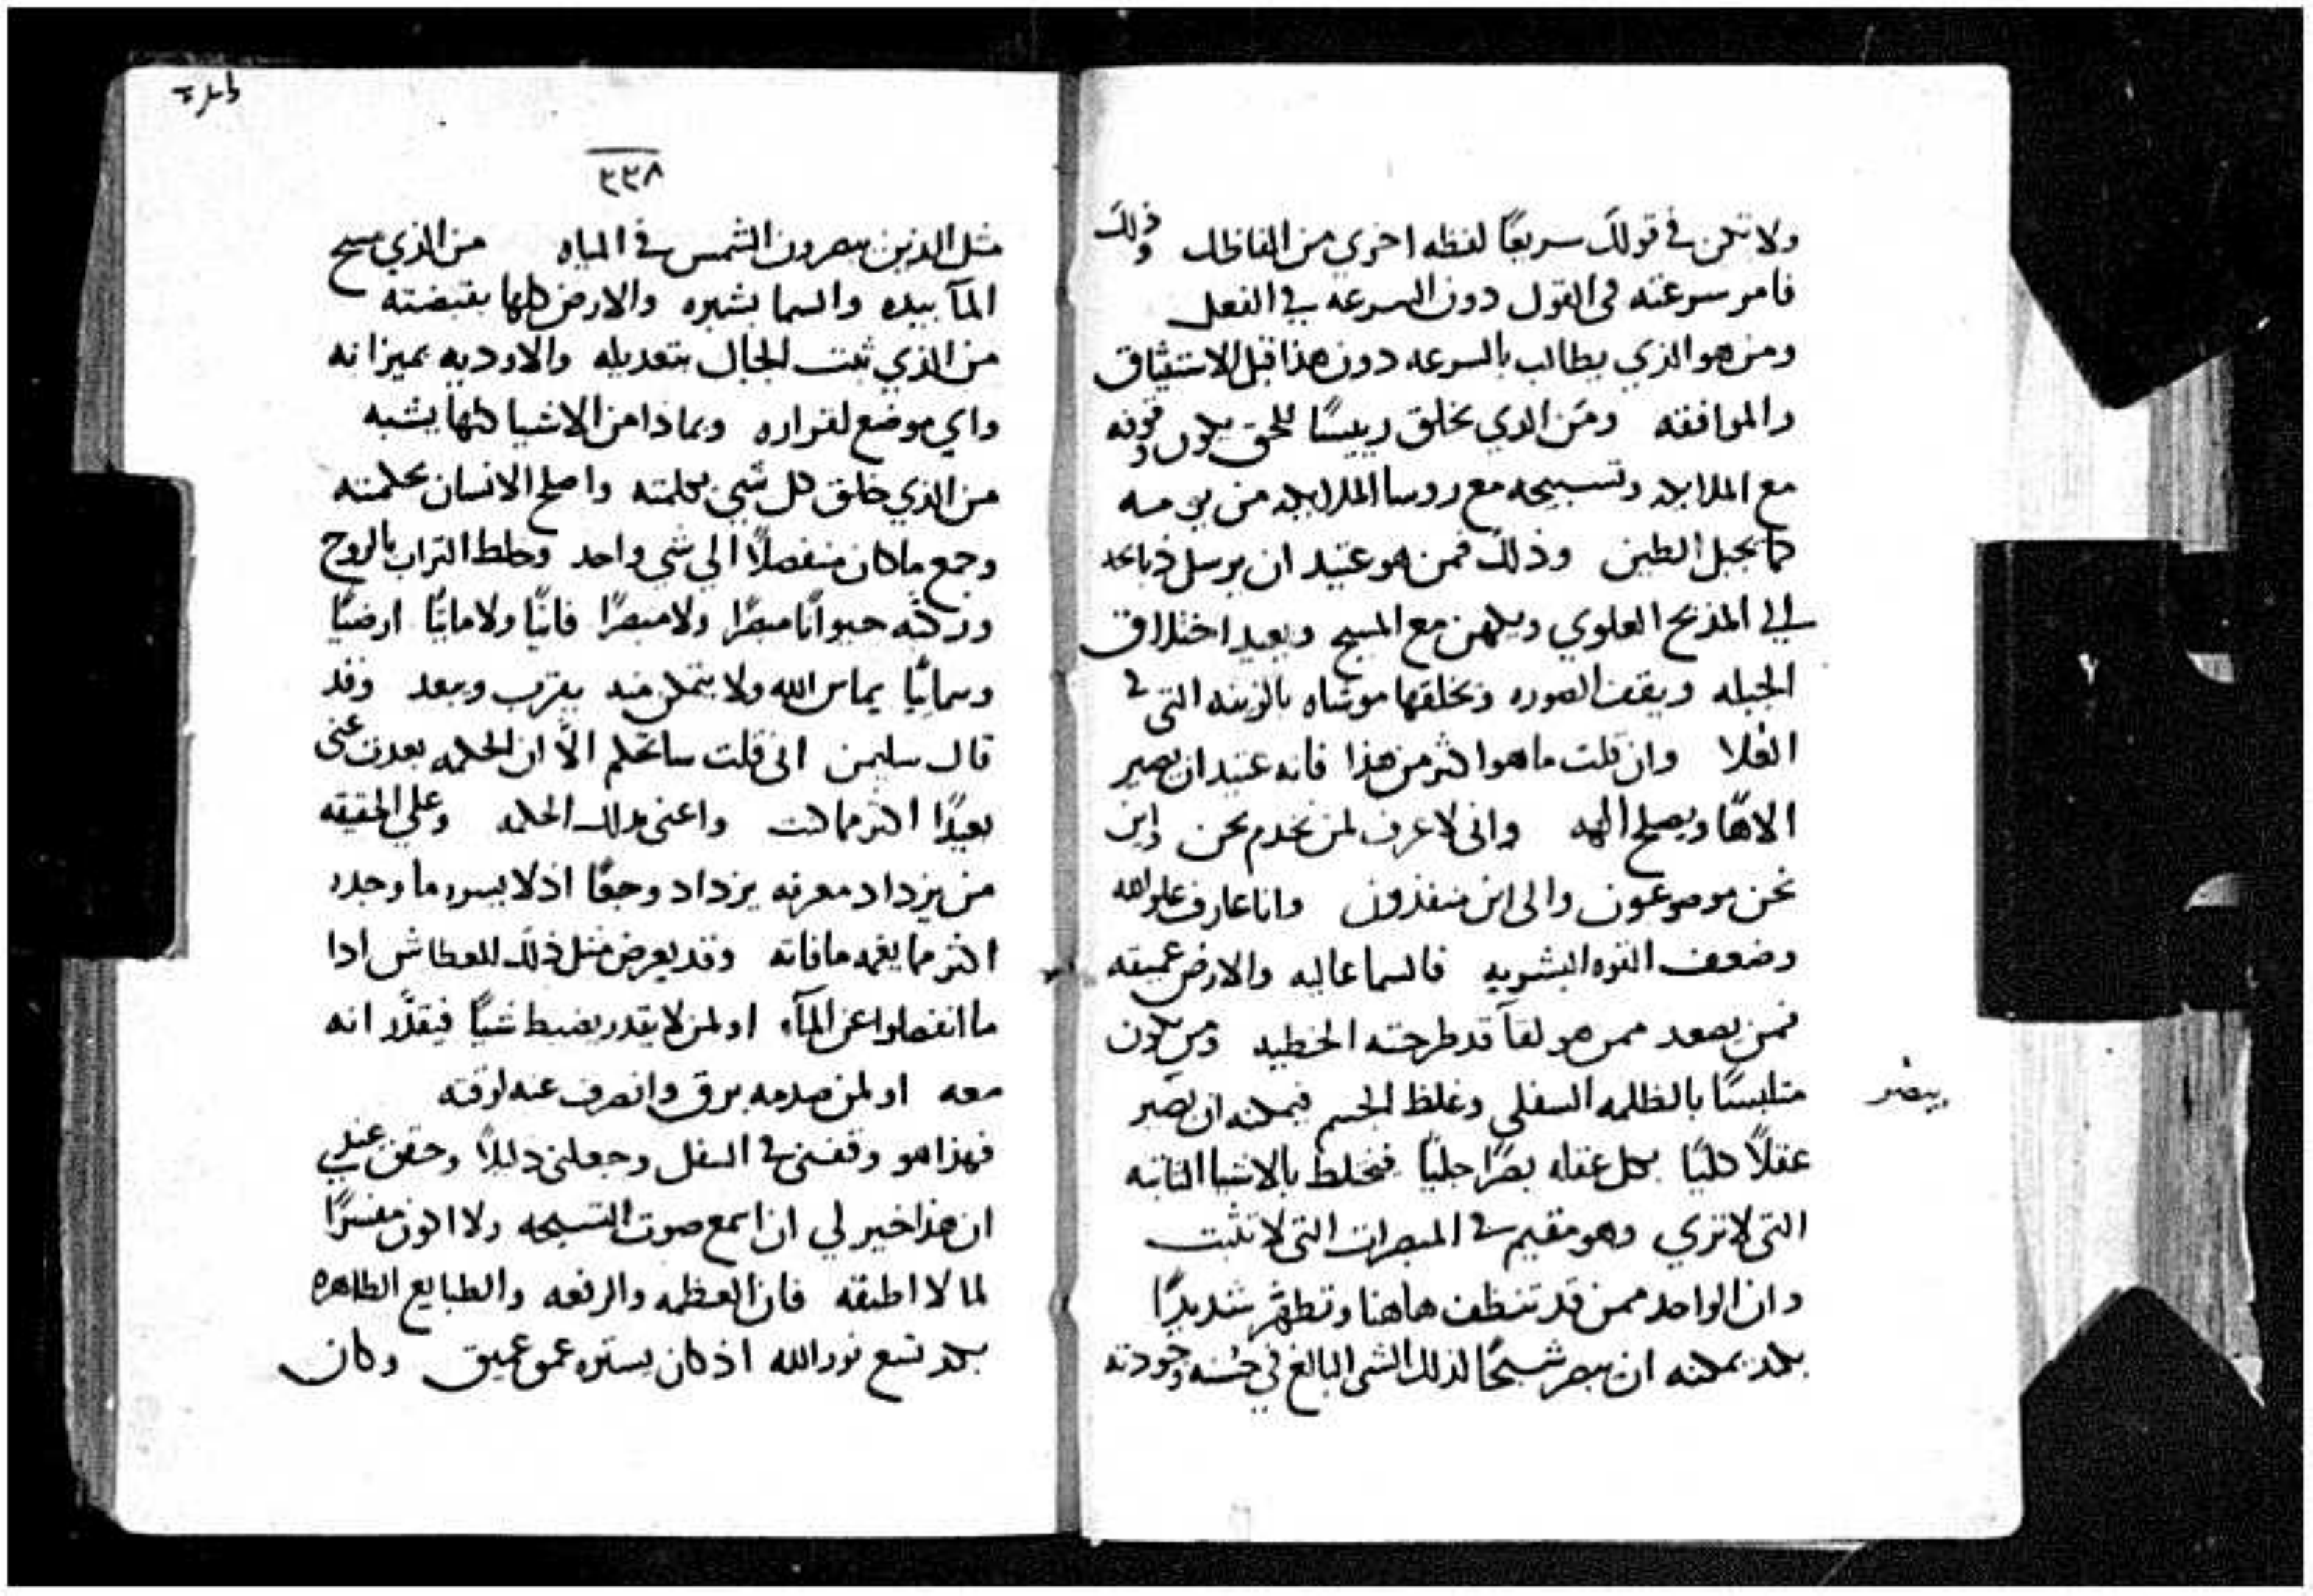 ولا تكن في قولك سريعًا لفظه اخري من الفاظك وذلك
فامر سرعته في القول دون السرعه في الفعل
ومن هو الذي يطالب بالسرعه دون هذا قبل الاستيثاق
والموافقه ومن الذي يخلق رييسًا للحق يكون وقوفه
مع الملايكه وتسبيحه مع روسا الملايكه من يومه
كما يجبل الطين وذلك فمن هو عتيد ان يرسل ذبايحه
الي المذبح العلوي ويكهن مع المسيح ويعيد اختلاق
الجبله ويقف الصوره ويخلقها موشاه بالزينه التي في
العُلا وان قلت ما هو اكثر من هذا فانه عتيد ان يصير
الاهًا ويصلح الهه واني لاعرف لمن نخدم نحن واين
نحن موضوعون والي اين منفذون وانا عارف علو الله
وضعف القوه البشريه فالسما عاليه والارض عميقه
فمن يصعد ممن هو لقآ قد طرحته الخطيه ومن يكون
متلبسًا بالظلمه السفلي وغلظ الجسم فيمكنه ان يصير
يبصر
عقلاً كليًا بكل عقله بصرًا جليًا فيخلط بالاشيا الثابته
التي لا تري وهو مقيم في المبصرات التي لا تثبت
وان الواحد ممن قد تنظف هاهنا وتطهر شديدًا
بكد يمكنه ان يبصر شبحًا لذلك الشي البالغ في حسنه وجودته
٣٣٨
مثل الذين يبصرون الشمس في المياه من الذي مسح
المآ بيده والسما بشبره والارض كلها بقبضته
من الذي ثبت الجبال بتعديله والاوديه بميزانه
واي موضع لقراره وبماذا من الاشيا كلها يشبه
من الذي خلق كل شي بكلمته واصلح الانسان بحكمته
وجمع ما كان منفصلاً الي شي واحد وخلط التراب بالروح
وركبه حيوانًا مبصرًا ولا مبصرًا فانيًا ولا مايتًا ارضيًا
وسمايًا يماس الله ولا يتمكن منه يقرب ويبعد وقد
قال سليمن اني قلت ساتحكم الاّ ان الحكمه بعدت عني
بعيدًا اكثر مما كنت واعني بذلك الحكمه وعلي الحقيقه
من يزداد معرفه يزداد وجعًا اذ لا يسره ما وجده
اكثر مما يغمه ما فاته وقد يعرض مثل ذلك للعطاش اذا
ما انفصلوا عن المآء او لمن لا يقدر يضبط شيًا فيقلّد انه
معه او لمن صدمه برق وانصرف عنه لوقته
فهذا هو وقفني في السفل وجعلني ذليلاً وحقق عندي
ان هذا خير لي ان اسمع صوت التسبحه ولا اكون مفسرًا
لما لا اطيقه فان العظمه والرفعه والطبايع الطاهره
بكد تسع نور الله اذ كان يستره عمق عميق وكان